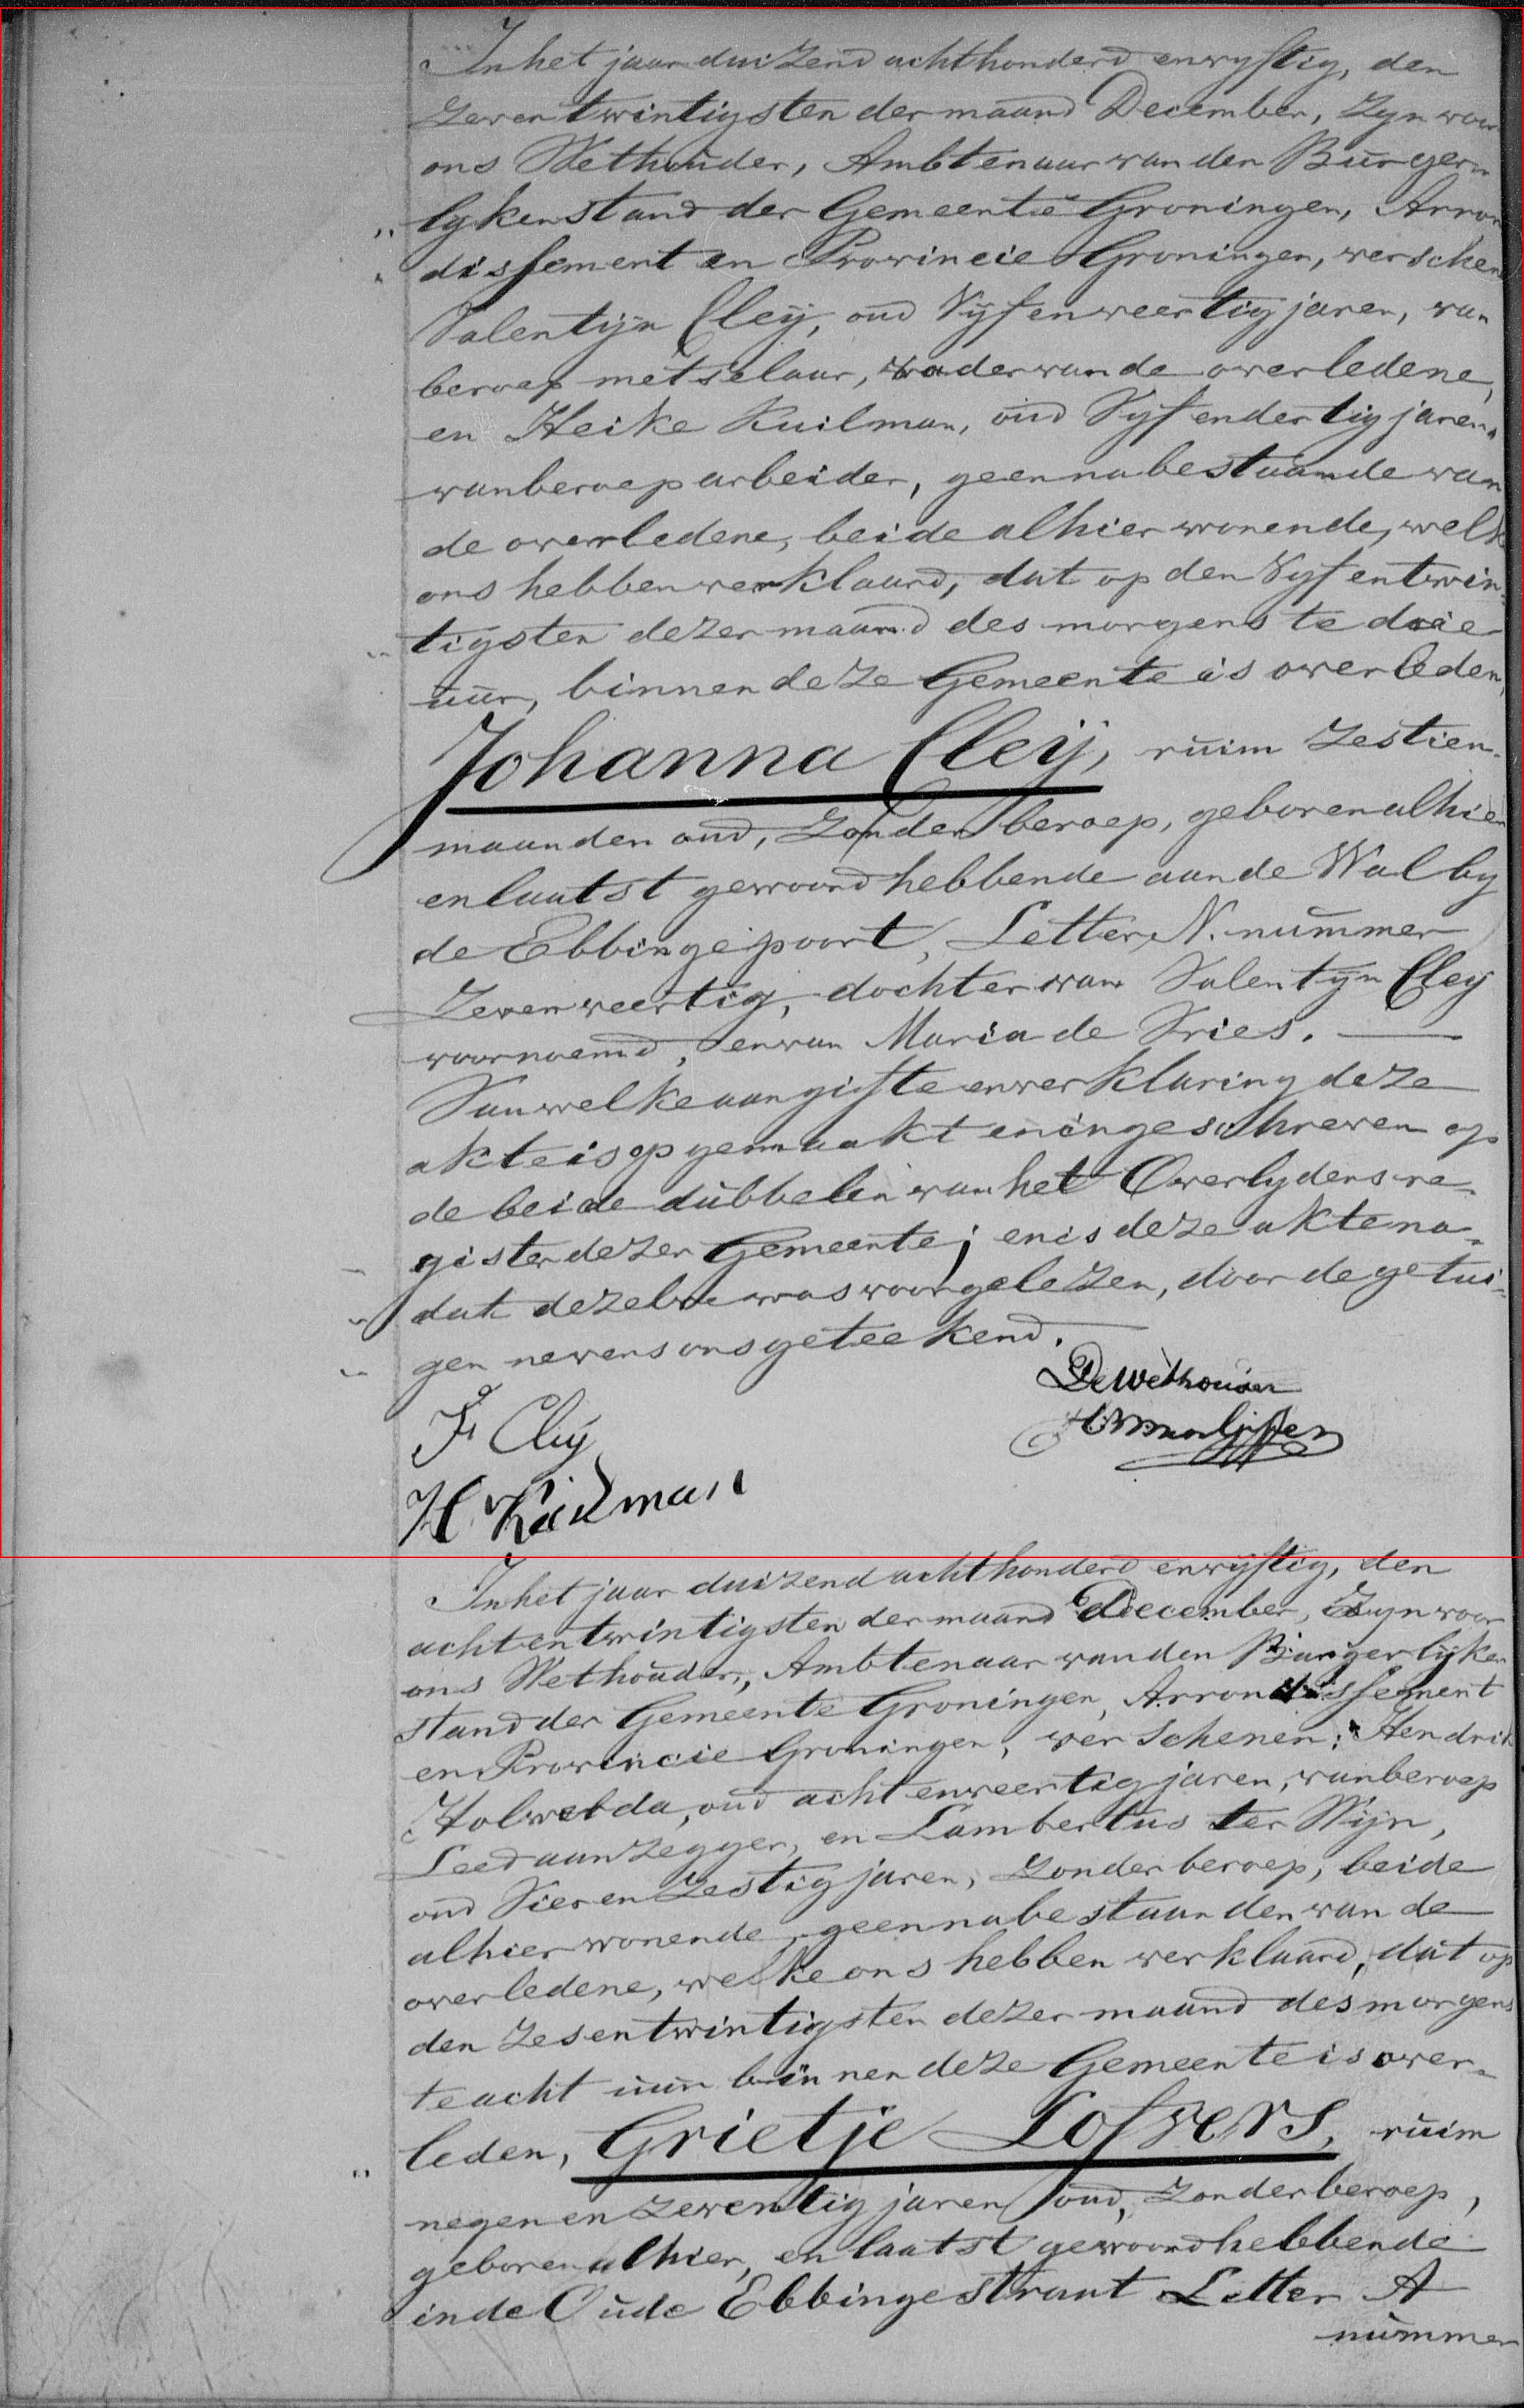 In het jaar duizend achthonderd en vyftig, den
zeven twintigsten der maand December, zyn voor
ons Wethouder, Ambtenaar van den Burger-
lyken stand der Gemeente Groningen, Arron
dissement en Provincie Groningen, verschen
Valentijn Cleij, oud Vyf en veertig jaren, van
beroep metselaar, vader van de overledene,
en Heike Kuilman, oud Vyf en dertig jaren,
van beroep arbeider, geen nabestaande van
de overledene, beide alhier wonende, welk
ons hebben verklaard, dat op den Vyf en twin-
tigsten dezer maand des morgens te drie
uur, binnen deze Gemeente is overleden,
Johanna Cleij, ruim zestien-
maanden oud, zonder beroep, geboren alhier
en laatst gewoond hebbende aan de Wal by
de Ebbingepoort, Letter N. nummer
Zeven veertig, dochter van Valentyn Cleij
voornoemd, en van Maria de Vries.
Van welke aangifte en verklaring deze
akte is opgemaakt en ingeschreven op
de beide dubbelen van het Overlydens re-
gister dezer Gemeente; en is deze akte na-
dat dezelve was voorgelezen, door de getui-
gen nevens ons geteekend.
De Wethouder
F Cleij
H Kuilman
In het jaar duizend achthonderd en vijftig, den
acht en twintigsten der maand December, Zyn voor
ons Wethouder, Ambtenaar van den Burgerlijken
stand der Gemeente Groningen, Arrondissement
en Provincie Groningen, verschenen: Hendrik
Holwerda, oud acht en veertig jaren, van beroep
Leedaanzegger, en Lambertus ter Wijn,
oud Vier en Zestig jaren, Zonder beroep, beide
alhier wonende, geen nabestaanden van de
overledene, welke ons hebben verklaard, dat op
den zes en twintigsten dezer maand des morgens
te acht uur binnen deze Gemeente is over-
leden, Grietje Lofvers, ruim
negen en zeventig jaren oud, zonder beroep,
geboren alhier, en laatst gewoond hebbende
in de Oude Ebbingestraat Letter A
nummer